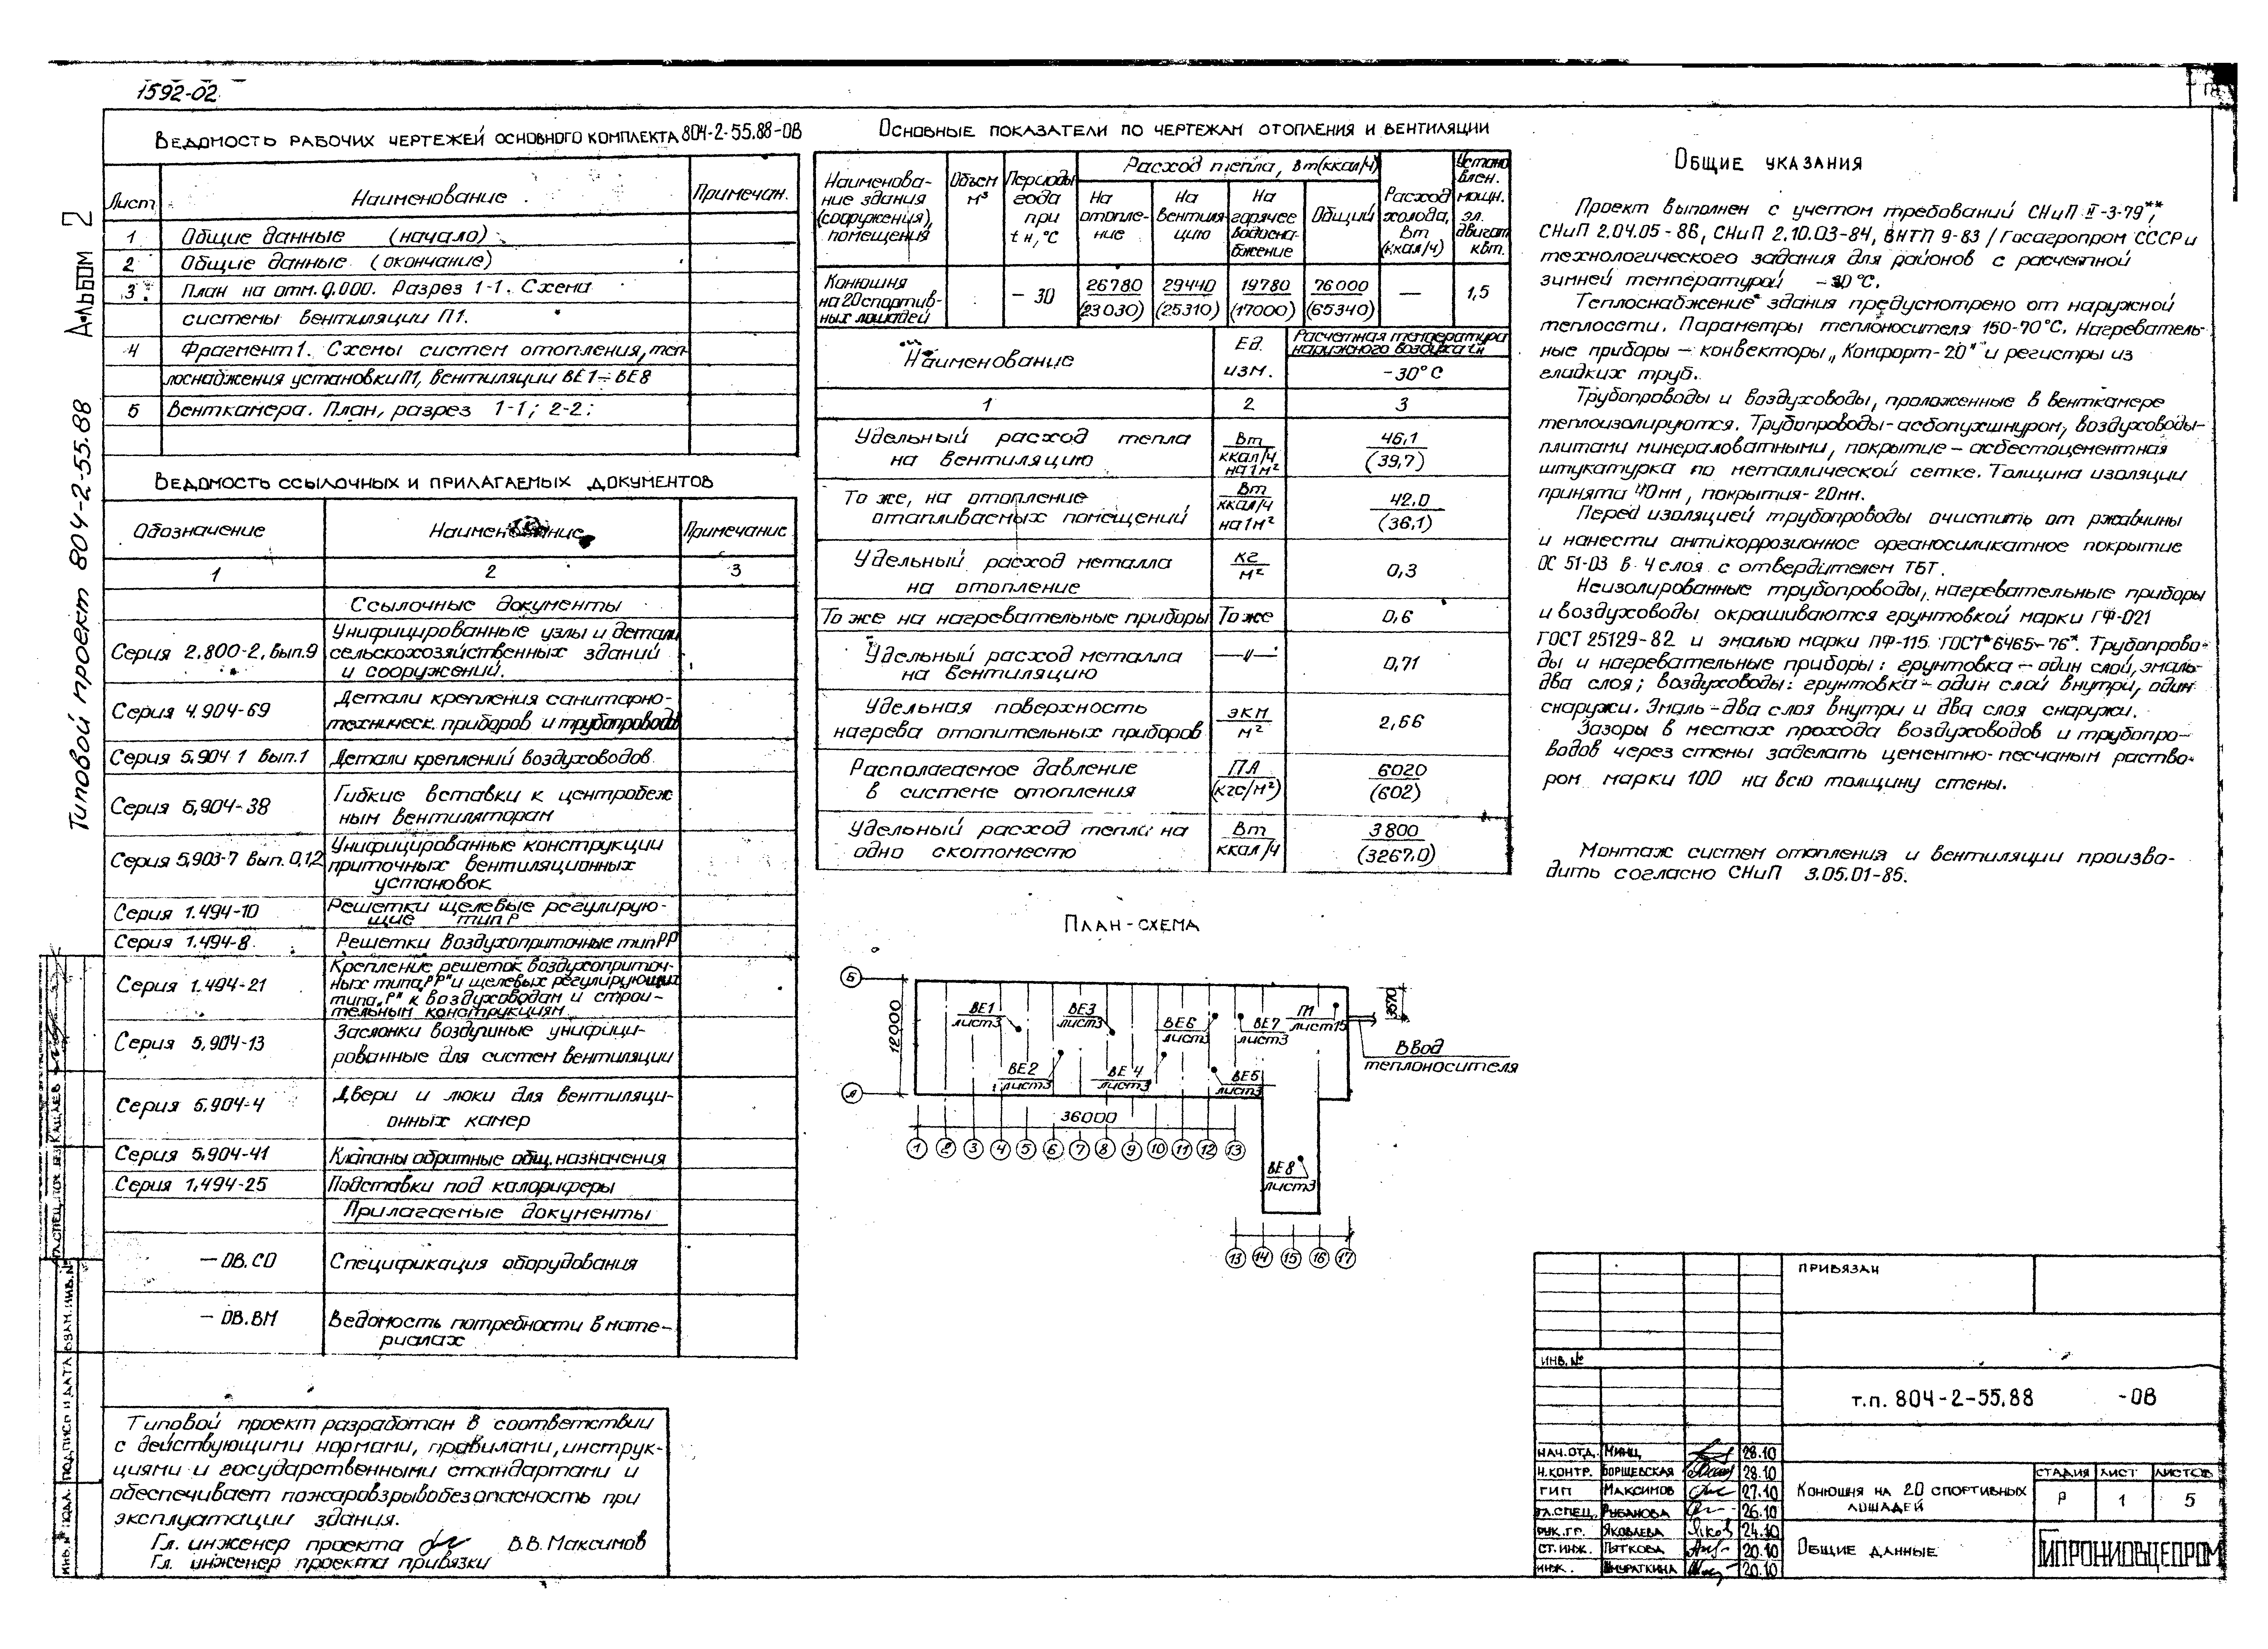 1592-02
Альбом 2
Типовой проект 804-2-55.88
Ведомость рабочих чертежей основного комплекта 804-2-55.88-ОВ
Лист Наименование Примечан.
1 Общие данные (начало)
2 Общие данные (окончание)
3 План на отм. 0.000. Разрез 1-1. Схема
системы вентиляции П1.
4 Фрагмент 1. Схемы систем отопления, теп-
лоснабжения установки П1, вентиляции ВЕ1÷ВЕ8
5 Венткамера. План, разрез 1-1; 2-2;
Ведомость ссылочных и прилагаемых документов
Обозначение Наименование Примечание
1 2 3
Ссылочные документы
Серия 2.800-2, вып.9 Унифицированные узлы и детали
сельскохозяйственных зданий
и сооружений.
Серия 4.904-69 Детали крепления санитарно-
техническ. приборов и трубопроводов
Серия 5.904 1 вып.1 Детали креплений воздуховодов
Серия 5.904-38 Гибкие вставки к центробеж
ным вентиляторам
Серия 5.903-7 вып. 0,1,2 Унифицированные конструкции
приточных вентиляционных
установок
Серия 1.494-10 Решетки щелевые регулирую-
щие тип Р
Серия 1.494-8 Решетки воздухоприточные тип РР
Серия 1.494-21 Крепление решеток воздухоприточ-
ных типа „РР" и щелевых регулирующих
типа „Р" к воздуховодам и строи-
тельным конструкциям
Серия 5.904-13 Заслонки воздушные унифици-
рованные для систем вентиляции
Серия 5.904-4 Двери и люки для вентиляци-
онных камер
Серия 5.904-41 Клапаны обратные общ. назначения
Серия 1.494-25 Подставки под калориферы
Прилагаемые документы
— ОВ.СО Спецификация оборудования
— ОВ.ВМ Ведомость потребности в мате-
риалах
Типовой проект разработан в соответствии
с действующими нормами, правилами, инструк-
циями и государственными стандартами и
обеспечивает пожаровзрывобезопасность при
эксплуатации здания.
Гл. инженер проекта В.В. Максимов
Гл. инженер проекта привязки
Основные показатели по чертежам отопления и вентиляции
Наименова-
ние здания
(сооружения),
помещения
Объем
м³
Периоды
года
при
tн, °С
Расход тепла, Вт (ккал/ч)
На
отопле-
ние
На
вентиля-
цию
На
горячее
водосна-
бжение
Общий
Расход
холода,
Вт
(ккал/ч)
Установ
влен.
мощн.
эл.
двигат
квт.
Конюшня
на 20 спортив-
ных лошадей
- 30 26780 29440 19780 76000 — 1,5
(23030) (25310) (17000) (65340)
Наименование Ед. изм. Расчетная температура
наружного воздуха tн
-30°С
1 2 3
Удельный расход тепла Вт 46,1
на вентиляцию ккал/ч на 1м² (39,7)
То же, на отопление Вт 42,0
отапливаемых помещений ккал/ч на 1м² (36,1)
Удельный расход металла кг
на отопление м² 0,3
То же на нагревательные приборы То же 0,6
Удельный расход металла —"— 0,71
на вентиляцию
Удельная поверхность экм 2,66
нагрева отопительных приборов м²
Располагаемое давление ПА 6020
в системе отопления (кгс/м²) (602)
Удельный расход тепла на Вт 3800
одно скотоместо ккал/ч (3267,0)
План-схема
Б
А
12000
36000
ВЕ1
лист3
ВЕ3
лист3
ВЕ6
лист3
ВЕ7
лист3
П1
ВЕ2
лист3
ВЕ4
лист3
ВЕ5
лист3
ВЕ8
лист3
Ввод
теплоносителя
1 2 3 4 5 6 7 8 9 10 11 12 13
13 14 15 16 17
Общие указания
Проект выполнен с учетом требований СНиП II-3-79**,
СНиП 2.04.05-86, СНиП 2.10.03-84, ВНТП 9-83 / Госагропром СССР и
технологического задания для районов с расчетной
зимней температурой -30°С.
Теплоснабжение здания предусмотрено от наружной
теплосети. Параметры теплоносителя 150-70°С. Нагреватель-
ные приборы – конвекторы „Комфорт-20" и регистры из
гладких труб.
Трубопроводы и воздуховоды, проложенные в венткамере
теплоизолируются. Трубопроводы-асбопухшнуром, воздуховоды-
плитами минераловатными, покрытие – асбестоцементная
штукатурка по металлической сетке. Толщина изоляции
принята 40мм, покрытия-20мм.
Перед изоляцией трубопроводы очистить от ржавчины
и нанести антикоррозионное органосиликатное покрытие
ОС 51-03 в 4 слоя с отвердителем ТБТ.
Неизолированные трубопроводы, нагревательные приборы
и воздуховоды окрашиваются грунтовкой марки ГФ-021
ГОСТ 25129-82 и эмалью марки ПФ-115 ГОСТ 6465-76*. Трубопрово-
ды и нагревательные приборы: грунтовка – один слой, эмаль-
два слоя; воздуховоды: грунтовка – один слой внутри, один
снаружи. Эмаль – два слоя внутри и два слоя снаружи.
Зазоры в местах прохода воздуховодов и трубопро-
водов через стены заделать цементно-песчаным раство-
ром марки 100 на всю толщину стены.
Монтаж систем отопления и вентиляции произво-
дить согласно СНиП 3.05.01-85.
Привязан
Инв. №
т.п. 804-2-55.88 -ОВ
Нач. отд. Минц 28.10
Н.контр. Борщевская 28.10
ГИП Максимов 27.10
Гл.спец. Рыбанова 26.10
Рук.гр. Яковлева 24.10
Ст.инж. Пяткова 20.10
Инж. 20.10
Конюшня на 20 спортивных
лошадей
Стадия Лист Листов
Р 1 5
Общие данные
Гипрониовцепром
Инв. № подл. Подпись и дата Взам. инв. №